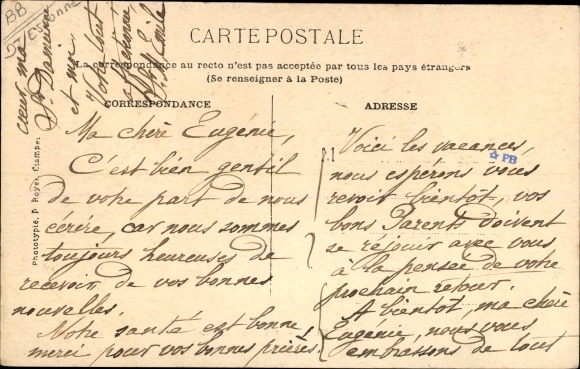 CARTE POSTALE
La correspondance au recto n'est pas acceptée par tous les pays étrangers
(Se renseigner à la Poste)
CORRESPONDANCE
ADRESSE
Ma chère Eugénie,
C'est bien gentil
de votre part de nous
écrire, car nous sommes
toujours heureuses de
recevoir de vos bonnes
nouvelles.
Notre santé est bonne,
merci pour vos bonnes prières.
Voici les vacances,
nous espérons vous
revoir bientôt, vos
bons Parents doivent
se réjouir avec vous
à la pensée de votre
prochain retour.
A bientôt, ma chère
Eugénie, nous vous
embrassons de tout
cœur, ma
Sr
et moi
Votre tout
Sr M. Emile
Phototypie P. Royer, Etampes
BB
Essonne
PB